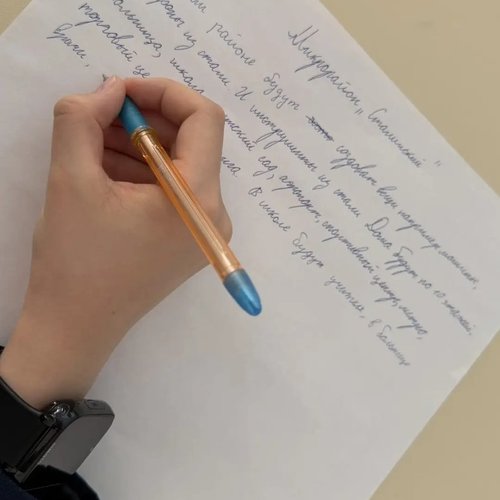 Микрорайон „ Сталинский "
районе будут создавать вещи например, машины,
из стали и инструменты из стали Дома будут по 10 этажей.
школа, детский сад, аэропорт, спортивный центр, метро,
торговый це В школе будут учителя, в больнице
врачи.